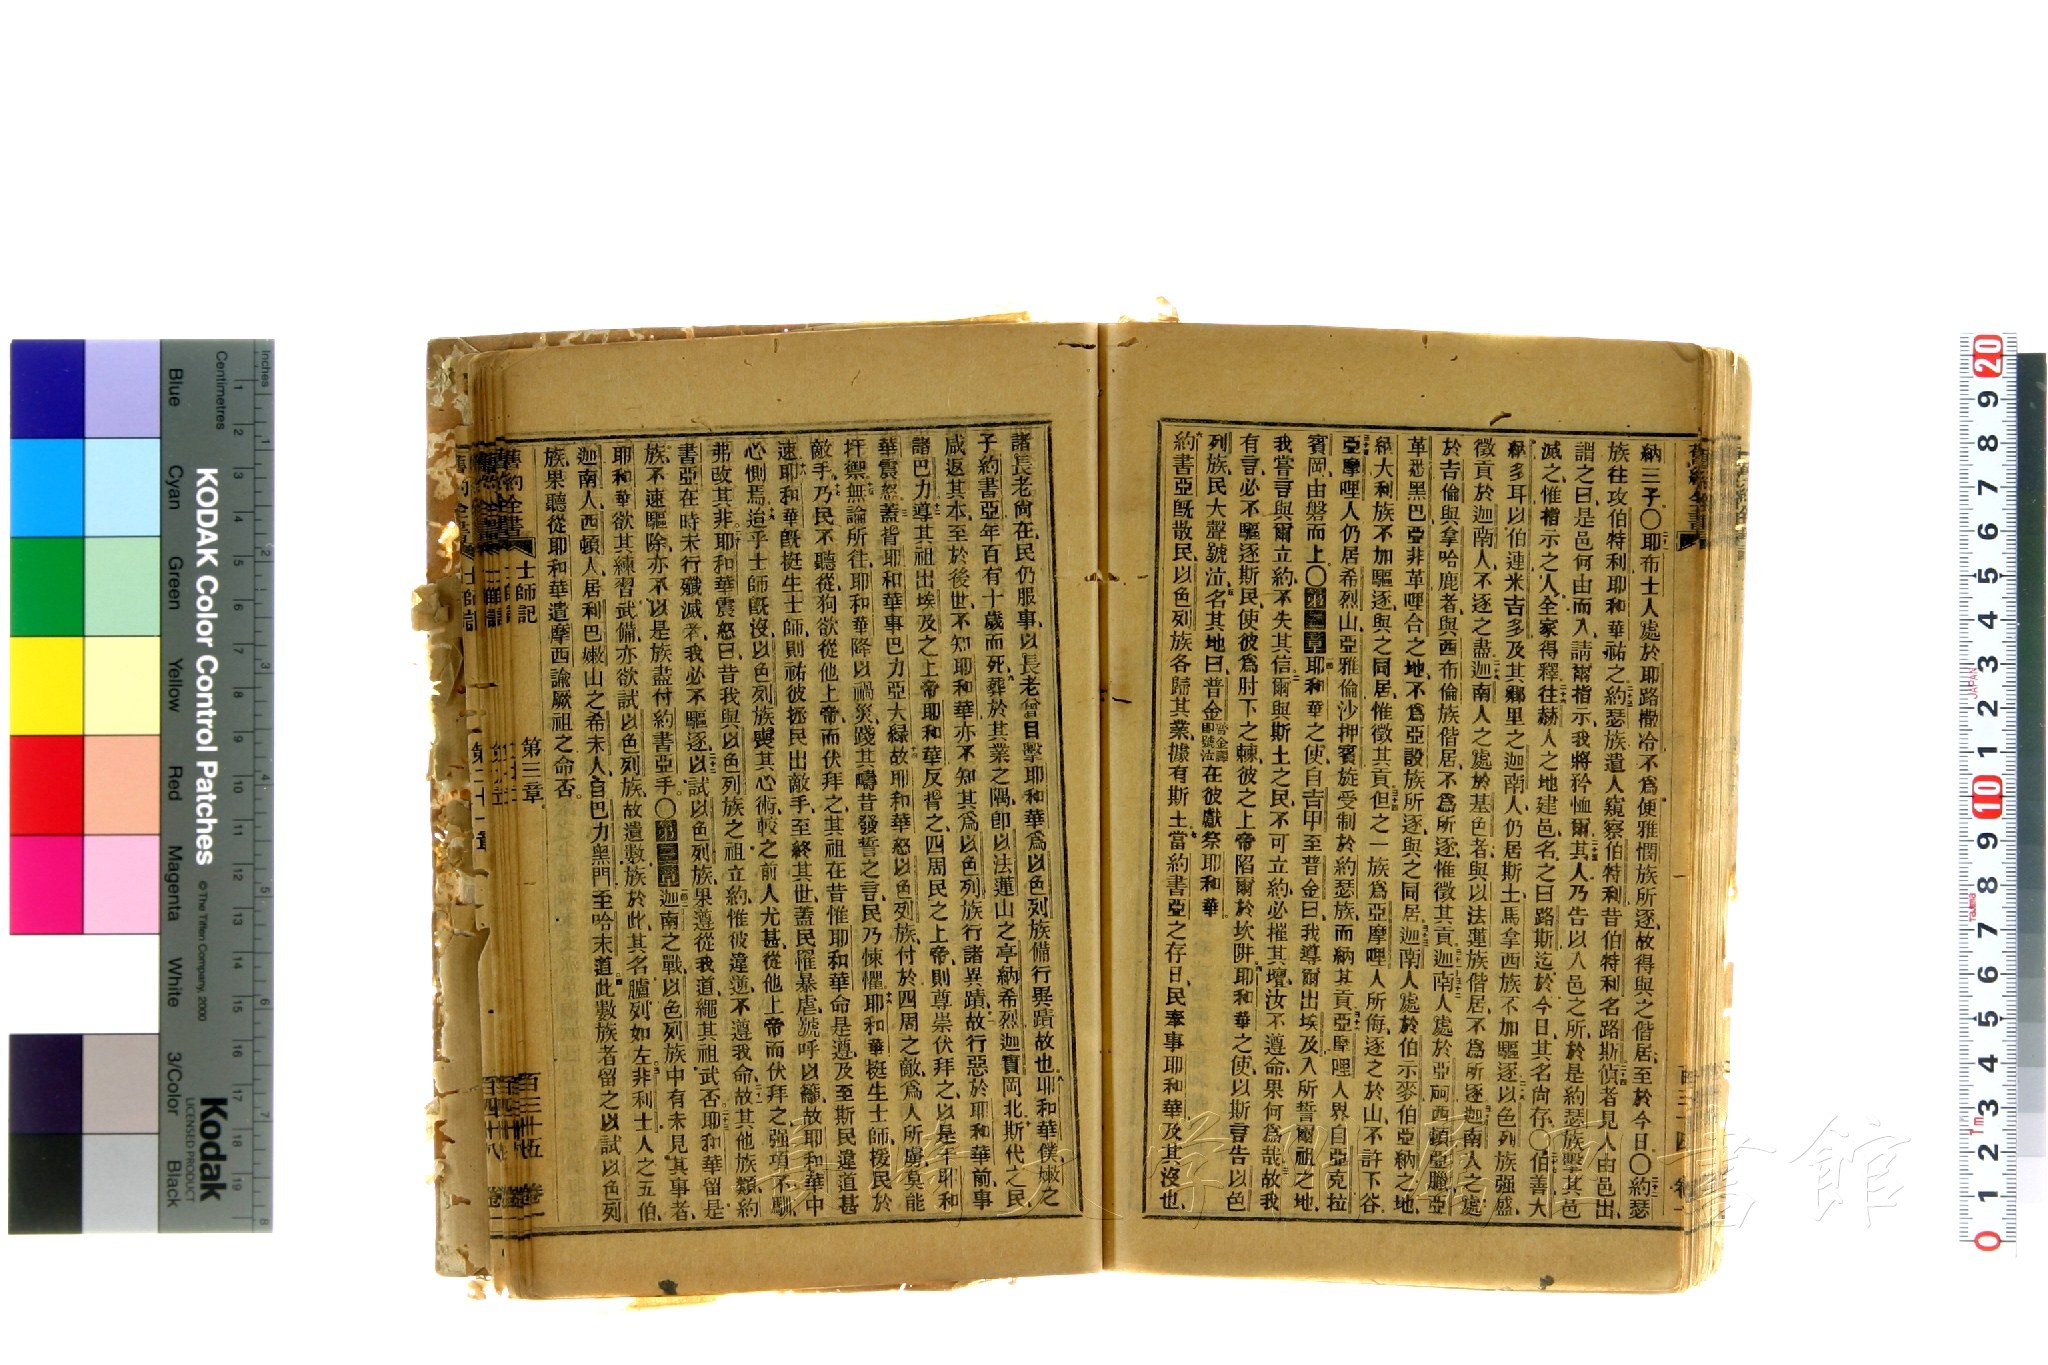 納三子〇耶布士人處於耶路撒冷不為便雅憫族所逐故得與之偕居至於今日〇約瑟
族往攻伯特利耶和華祐之約瑟族遣人窺察伯特利昔伯特利名路斯偵者見人由邑出
謂之曰是邑何由而入請爾指示我將矜恤爾其人乃告以入邑之所於是約瑟族擊其邑
滅之惟指示之人全家得釋往赫人之地建邑名之曰路斯迄於今日其名尚存〇伯善大
納多耳以伯連米吉多及其鄉里之迦南人仍居斯土馬拿西族不加驅逐以色列族強盛
徵貢於迦南人不逐之盡迦南人之處於基色者與以法蓮族偕居不為所逐迦南人之處
於吉倫與拿哈鹿者與西布倫族偕居不為所逐惟徵其貢迦南人處於亞柯西頓亞臘亞
革悉黑巴亞非革哩合之地不為亞設族所逐與之同居迦南人處於伯示麥伯亞納之地
納大利族不加驅逐與之同居惟徵其貢但之一族為亞摩哩人所侮逐之於山不許下谷
亞摩哩人仍居希烈山亞雅倫沙押賓旋受制於約瑟族而納其貢亞摩哩人界自亞克拉
賓岡由磐而上〇第二章耶和華之使自吉甲至普金曰我導爾出埃及入所誓爾祖之地
我嘗言與爾立約不失其信爾與斯土之民不可立約必摧其壇汝不遵命果何為哉故我
有言必不驅逐斯民使彼為肘下之棘彼之上帝陷爾於坎阱耶和華之使以斯言告以色
列族民大聲號泣名其地曰普金普金譯即號泣在彼獻祭耶和華
約書亞既散民以色列族各歸其業據有斯土當約書亞之存日民奉事耶和華及其沒也
諸長老尚在民仍服事以長老曾目擊耶和華為以色列族備行異蹟故也耶和華僕嫩之
子約書亞年百有十歲而死葬於其業之隅即以法蓮山之亭納希烈迦實岡北斯代之民
咸返其本至於後世不知耶和華亦不知其為以色列族行諸異蹟故行惡於耶和華前事
諸巴力導其祖出埃及之上帝耶和華反背之四周民之上帝則尊崇伏拜之以是干耶和
華震怒蓋背耶和華事巴力亞大綠故耶和華怒以色列族付於四周之敵為人所虜莫能
扞禦無論所往耶和華降以禍災踐其疇昔發誓之言民乃悚懼耶和華挺生士師援民於
敵手乃民不聽從狥欲從他上帝而伏拜之其祖在昔惟耶和華命是遵及至斯民違道甚
速耶和華既挺生士師則祐彼拯民出敵手至終其世蓋民罹暴虐號呼以籲故耶和華中
心惻焉迨乎士師既沒以色列族喪其心術較之前人尤甚從他上帝而伏拜之強項不馴
弗改其非耶和華震怒曰昔我與以色列族之祖立約惟彼違逆不遵我命故其他族類約
書亞在時未行殲滅者我必不驅逐以試以色列族果遵從我道繩其祖武否耶和華留是
族不速驅除亦不以是族盡付約書亞手〇第三章迦南之戰以色列族中有未見其事者
耶和華欲其練習武備亦欲試以色列族故遺數族於此其名臚列如左非利士人之五伯
迦南人西頓人居利巴嫩山之希未人自巴力黑門至哈末道此數族者留之以試以色列
族果聽從耶和華遣摩西諭厥祖之命否
舊約全書 士師記 第三章 百三十五 卷二
KODAK Color Control Patches
© The Tiffen Company, 2000
Kodak
LICENSED PRODUCT
Inches
Centimetres
Blue
Cyan
Green
Yellow
Red
Magenta
White
3/Color
Black
JAPAN